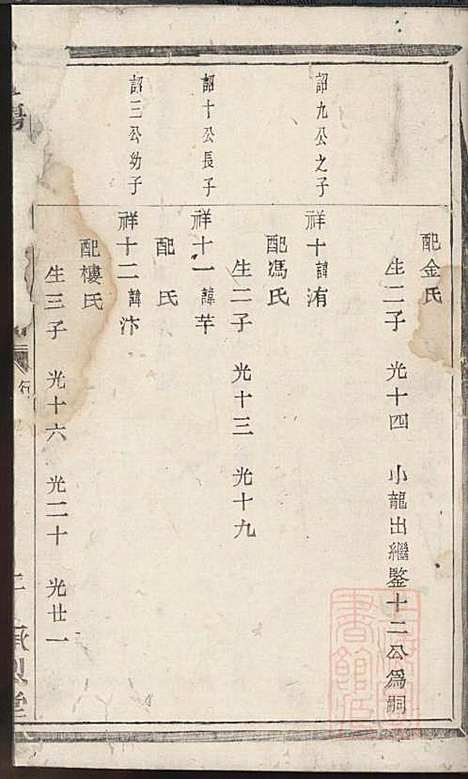 配金氏
生二子 光十四 小龍出繼鑒十二公為嗣
詔九公之子
祥十諱洧
配馮氏
生二子 光十三 光十九
詔十公長子
祥十一諱芊
配 氏
詔二公幼子
祥十二諱汴
配樓氏
生三子 光十六 光二十 光廿一
行